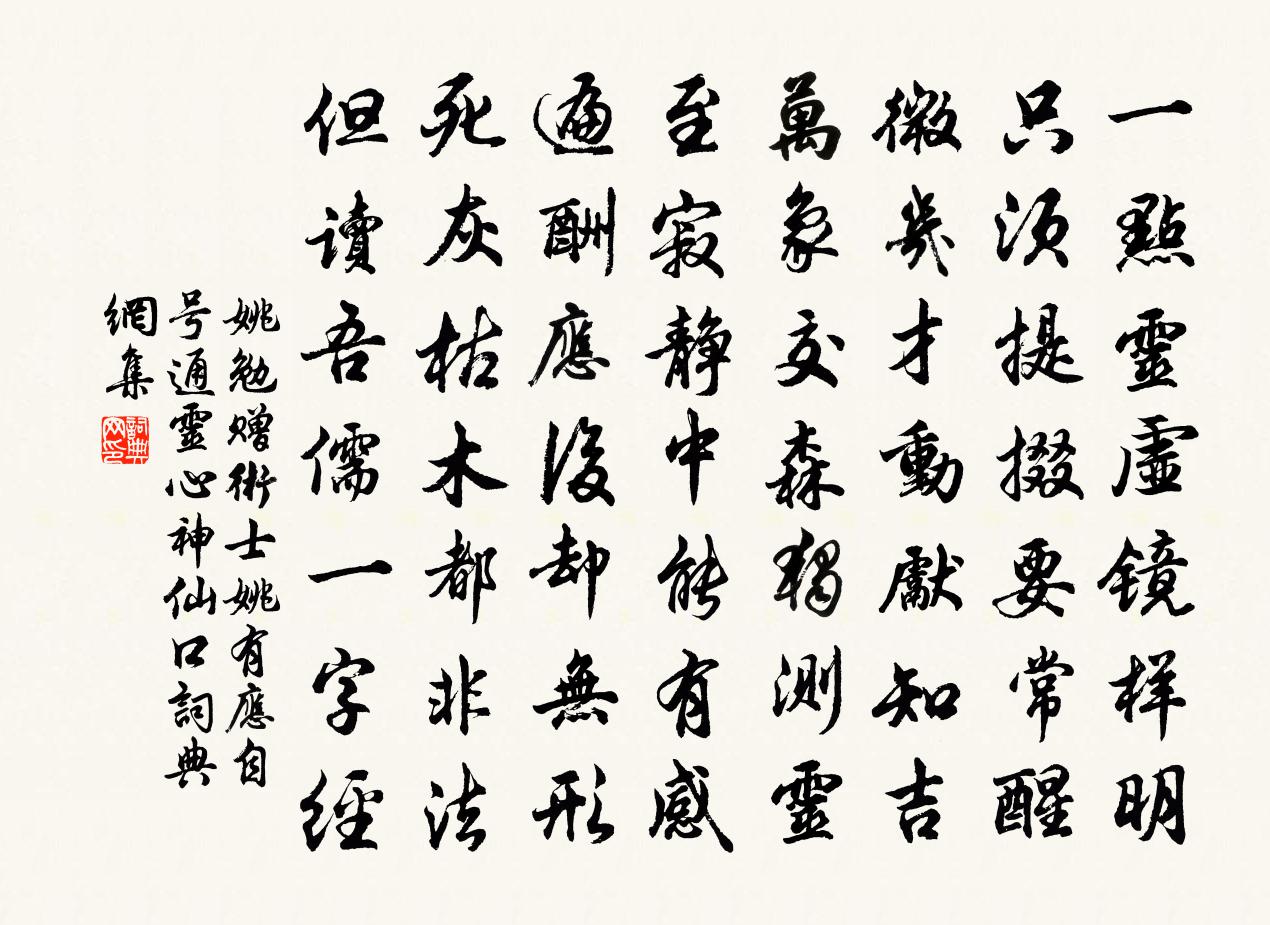 一點靈虛镜样明
只須提掇要常醒
微幾才動獻知吉
萬象交森獨測靈
至寂静中能有感
遍酬應後却無形
死灰枯木都非法
但讀吾儒一字經
姚勉赠術士姚有應自
号通靈心神仙口詞典
網集
詞典
网印